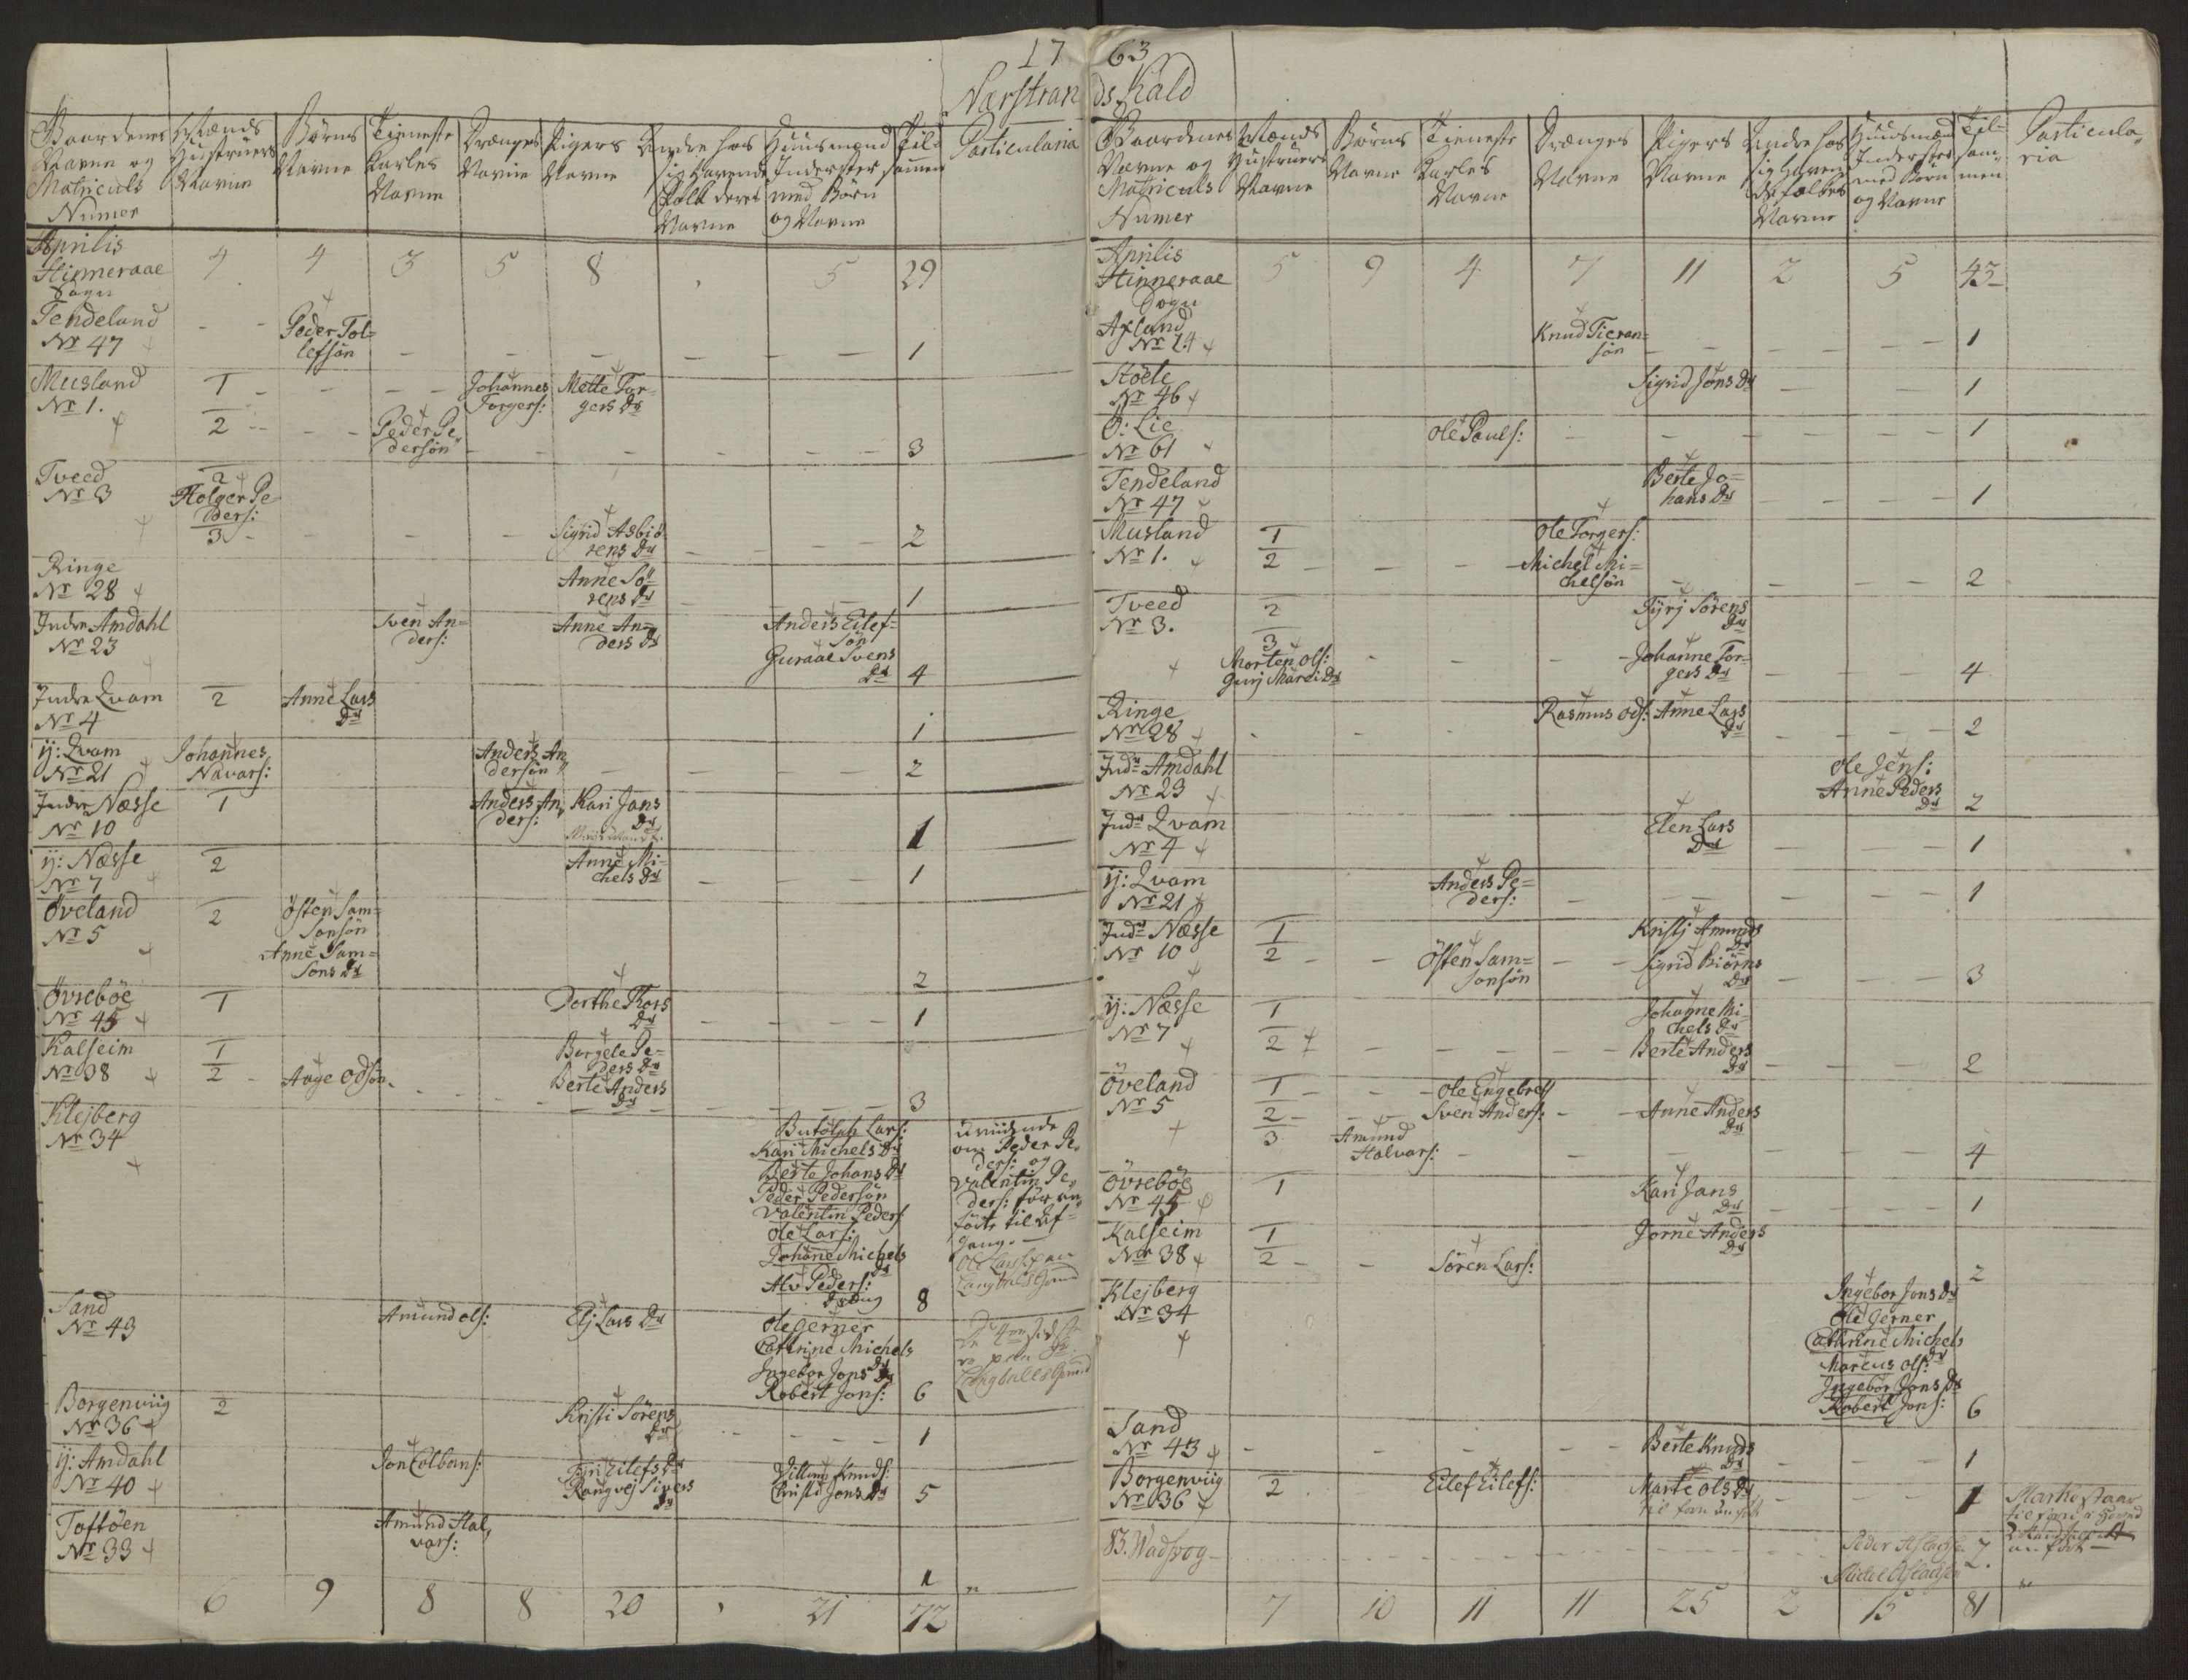 17 63
Nærstran ds Kald
Gaardenes Navne og Matriculs Numer
Mænds Hustruers Navne
Børns Navne
Tieneste Karles Navne
Drænges Navne
Pigers Navne
Andre hos sig havende Folk deres Navne
Huusmænd Inderster med Børn og Navne
Tilsammen
Particularia
Aprilis Hinneraae Sogn 4 4 3 5 8 5 29
Tendeland
Nr 47
Peder Tol=
lefsøn
1
Meusland
Nr 1.
1
Johannes
Torgers:
Mette Tor=
gers Dr
2
Peder Pe
dersøn
3
Tveed
Nr 3
2
Holger Pe
ders:
3
Sigrid Asbiø
rens Dr
2
Ringe
Nr 28
Anne Sø
rens Dr
1
Indre Amdahl
Nr 23
Sven An=
ders:
Anne An=
ders Dr
Anders Eilef=
søn
Guraae Svens
Dr
4
Indre Qvam
Nr 4
2
Anne Lars
Dr
1
ÿ: Qvam
Nr 21
Johannes
Navars:
Anders An
dersøn
2
Indre Næsse
Nr 10
1
Anders An
ders:
Kari Jans
Dr
1
ÿ: Næsse
Nr 7
2
Anne Mi=
chels Dr
1
Øveland
Nr 5
2
Østen Sam=
sonsøn
Anne Sam=
sons Dr
2
Øvrebøe
Nr 45
1
Dorthe Thors
Dr
1
Kalseim
Nr 38
1
2
Aage Odsøn
Borgele Pe=
ders Dr
Berte Anders
Dr
3
Klejberg
Nr 34
Butolph Lars:
Kari Michels Dr
Berte Johans Dr
Peder Pedersøn
Valentin Peders
Ole Lars:
Johane Michels
Dr
Alv Peders:
8
om Peder Pe
ders: og
Valentin Pe
ders: før an
førte til Af=
gang.
Sand
Nr 43
Amund Ols:
Elj Lars Dr
Ole Gerner
Cathrine Michels
Dr
Ingebor Jons Dr
Robert Jons:
6
Borgenviig
Nr 36
2
Kristi Sørens
Dr
1
ÿ: Amdahl
Nr 40
Jon Colbens:
Tyri Eilefs Dr
Rangvej Sivers
Dr
Villum Knuds:
Christi Jons Dr
5
Toftøen
Nr 33
Amund Hal
vars:
1
6 9 8 8 20 21 72
Gaardenes Navne og Matriculs Numer
Mænds Hustruers Navne
Børns Navne
Tieneste Karles Navne
Drænges Navne
Pigers Navne
Andre hos sig havende Folkes Navne
Huusmænd Inderster med Børn og Navne
Til=sammen
Particularia
Aprilis Hinneraae Sogn 5 9 4 7 11 2 5 43
Axland
Nr 24
Knud Tieran=
søn
1
Støele
Nr 46
Sigrid Jons Dr
1
Ø: Lie
Nr 61
Ole Pouls:
1
Tendeland
Nr 47
Berte Jo=
hans Dr
1
Musland
Nr 1.
1
2
Ole Torgers:
Michel Mi=
chelsøn
2
Tveed
Nr 3.
2
Tyrj Sørens
Dr
3
Morten Ols:
Gurj Dr
Johanne Tor=
gers Dr
4
Ringe
Nr 28
Rasmus Ods:
Anne Lars
Dr
2
Indr Amdahl
Nr 23
Ole Jens:
Anne Peders
Dr
2
Indr Qvam
Nr 4
Elen Lars
Dr
1
ÿ: Qvam
Nr 21
Anders Pe=
ders:
1
Indr Næsse
Nr 10
1
2
Østen Sam=
sonsøn
Kristj Amunds
Dr
Sigrid Biørns
Dr
3
ÿ: Næsse
Nr 7
1
2
Johanne Mi
chels Dr
Berte Anders
Dr
2
Øveland
Nr 5
1
2
3
Amund
Halvars:
Ole Engebret
Sven Anders:
Anne Anders
Dr
4
Øvrebøe
Nr 45
1
Kari Jans
Dr
1
Kalseim
Nr 38
1
2
Søren Lars:
Jorne Anders
Dr
2
Klejberg
Nr 34
Ingebor Jons Dr
Ole Gerner
Cathrine Michels
Dr
Marcus Ols:
Ingebor Jons Dr
Robert Jons:
6
Sand
Nr 43
Berte Knuds
Dr
1
Borgenviig
Nr 36
2
Eilef Eilefs:
Marte Ols Dr
1
83. Wadsvog
2.
7 10 11 11 25 2 15 81